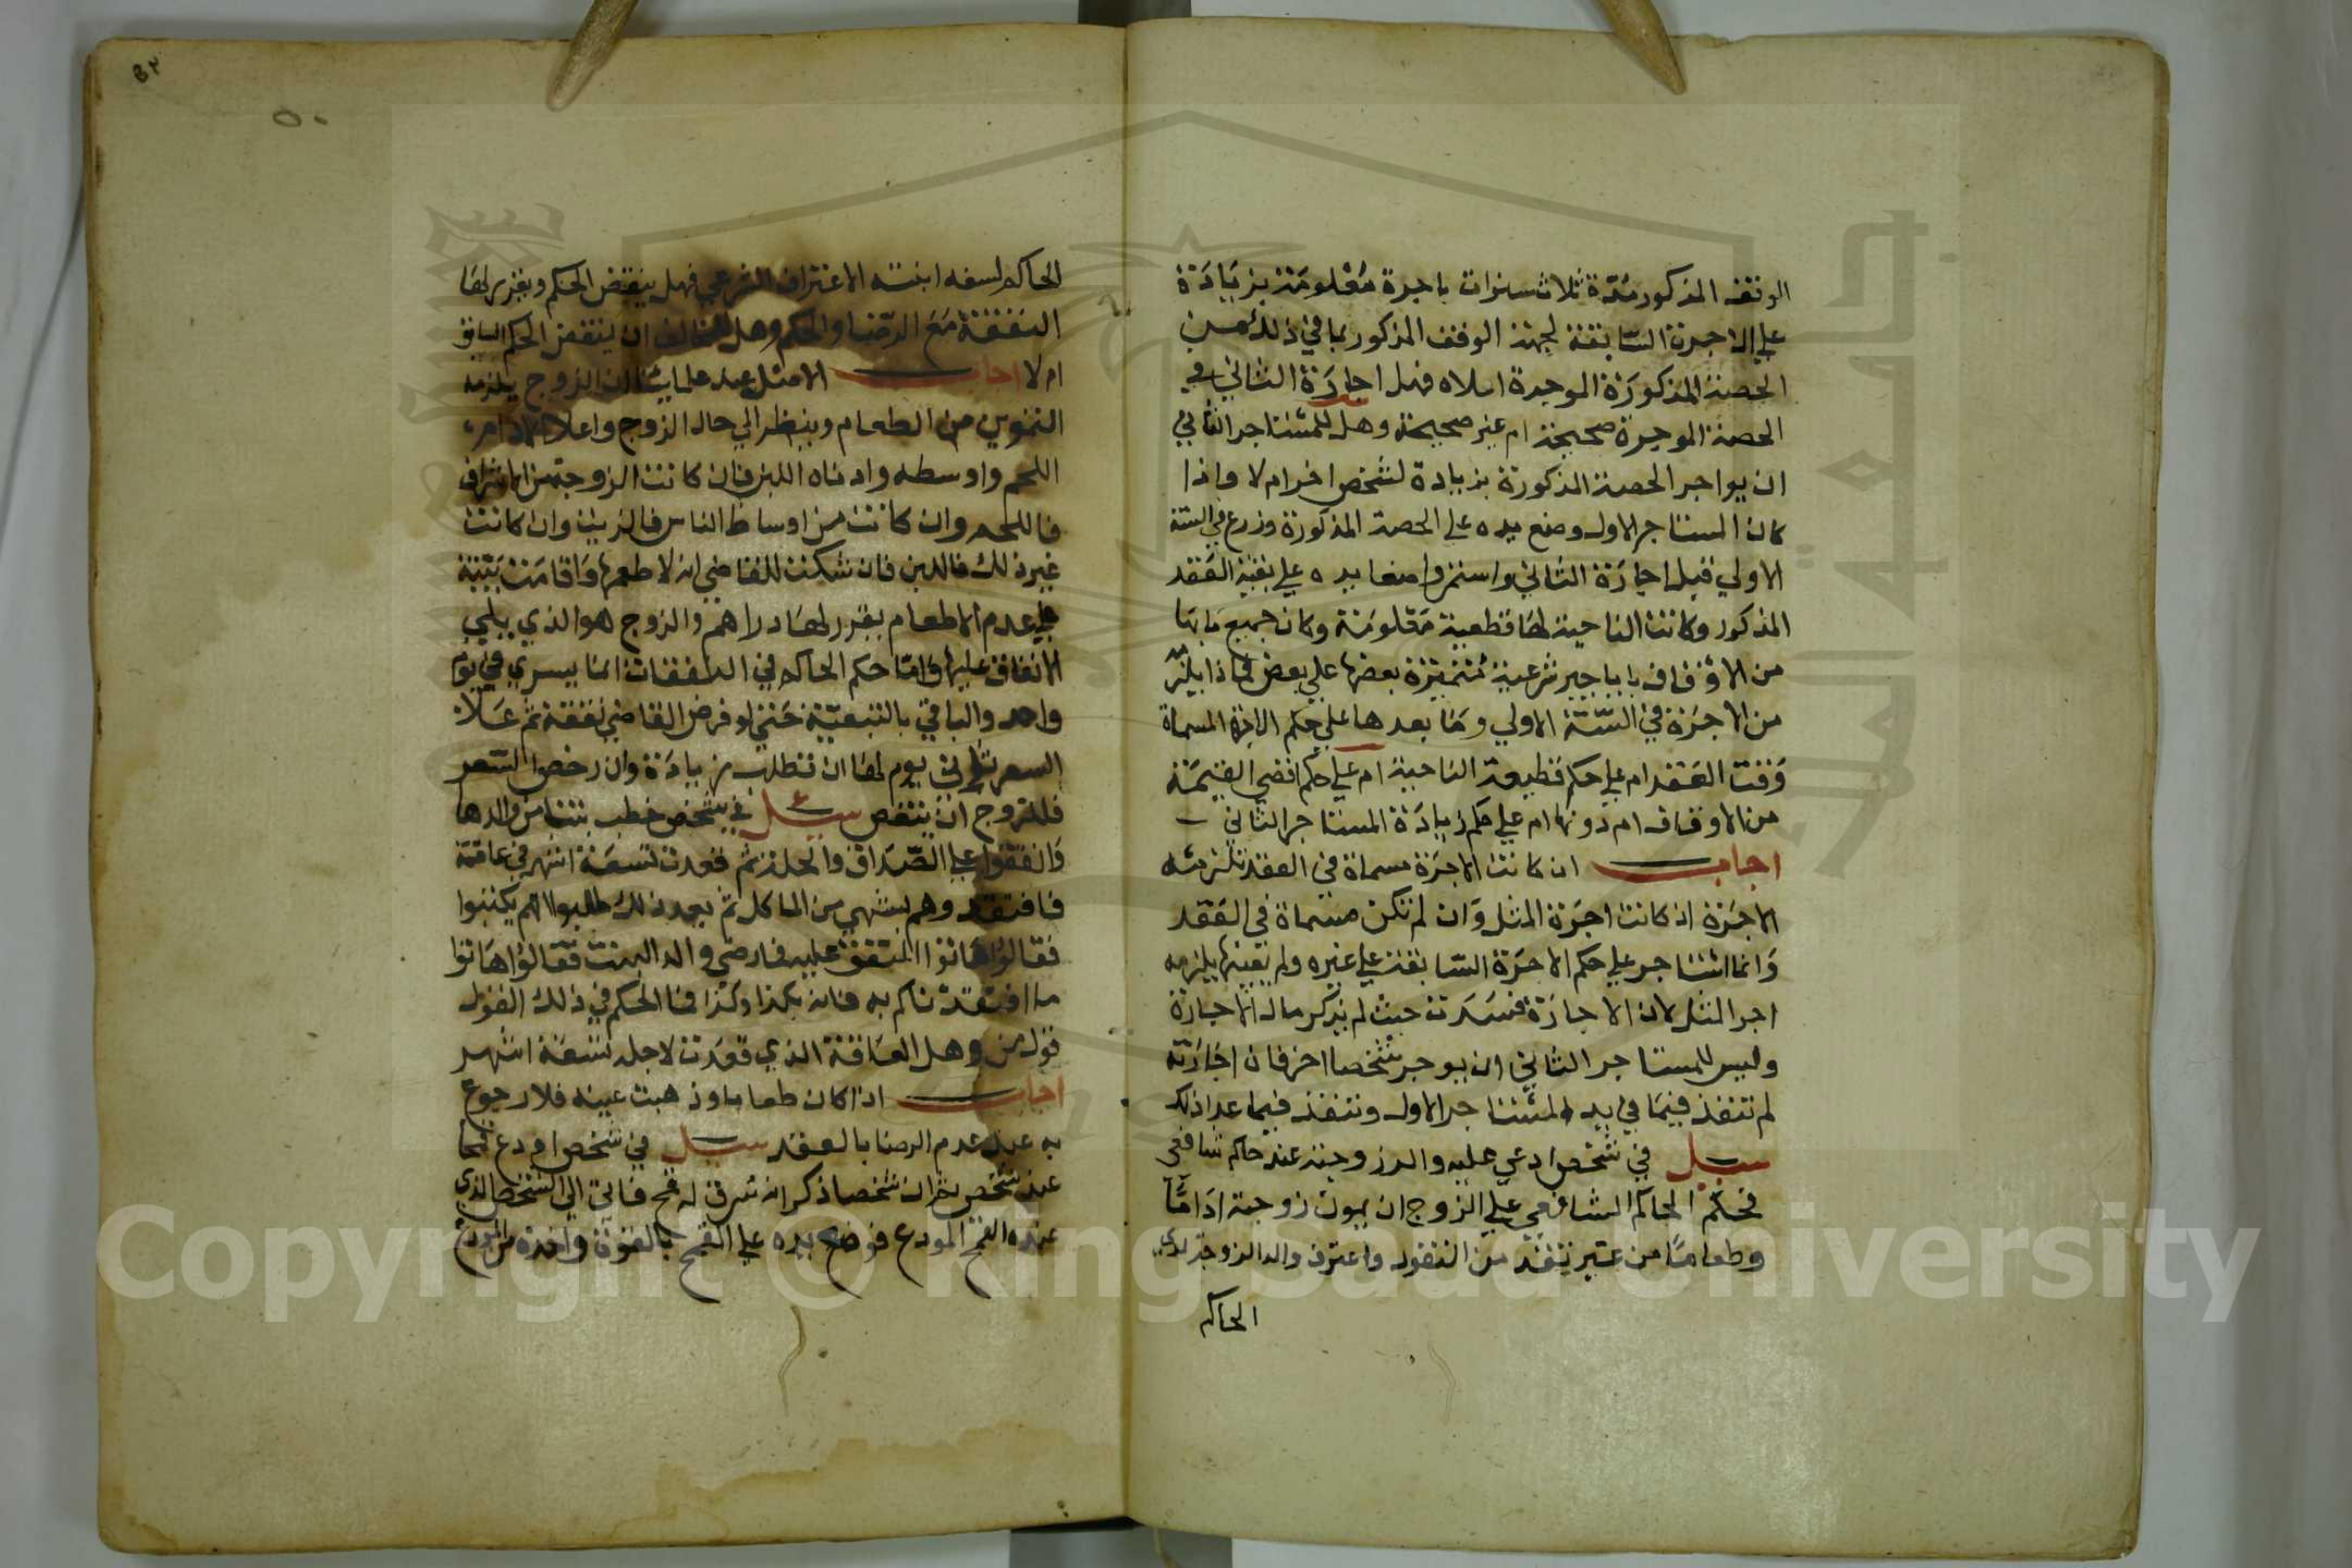 الوقف المذكور مدة ثلاث سنوات باجرة معلومة بزيادة
علي الاجرة السابقة لجهة الوقف المذكور بما في ذلك من
الحصة المذكورة الموجرة اعلاه فهل اجارة الثاني في
الحصة الموجرة صحيحة ام غير صحيحة وهل للمستاجر الثاني
ان يواجر الحصة المذكورة بزيادة لشخص اخر ام لا واذا
كان المستاجر الاول وضع يده علي الحصة المذكورة وزرع في السنة
الاولي قبل اجارة الثاني واستمر واضعا يده علي بقية العقد
المذكور وكانت الناحية لها قطيعة معلومة وكان جميع ما بها
من الاوقاف بابا جير شرعية متميزة بعضها علي بعض فماذا يلزمه
من الاجرة في السنة الاولي وما بعدها علي حكم الاجرة المسماة
وقت العقد ام علي حكم قطيعة الناحية ام علي حكم اقصي القيمة
من الاوقاف ام دونها ام علي حكم زيادة المستاجر الثاني
اجاب ان كانت الاجرة مسماة في العقد تلزمه
الاجرة اذ كانت اجرة المثل وان لم تكن مسماة في العقد
وانما استاجر علي حكم الاجرة السابقة علي غيره ولم يعينها يلزمه
اجر المثل لان الاجارة فسدت حيث لم يذكر مال الاجارة
وليس للمستاجر الثاني ان يوجر شخصا اخر فان اجارته
لم تنفذ فيما في يد المستاجر الاول وتنفذ فيما عدا ذلك
سيل في شخص ادعي عليه والد زوجته عند حاكم شافعي
فحكم الحاكم الشافعي علي الزوج ان يمون زوجته اداما
وطعاما من غير تنفد من النقود واعترف والد الزوجة لدي
الحاكم
الحاكم لسفه ابنته الاعتراف الشرعي فهل ينقض الحكم ويغير لها
النفقة مع الرضا والحكم وهل للمخالف ان ينقض الحكم السابق
ام لا اجاب الامثل عند علمائنا ان الزوج يلزمه
التموين من الطعام وينظر الي حال الزوج واعلا الادام
اللحم واوسطه وادناه اللبن فان كانت الزوجة من الاشراف
فاللحم وان كانت من اوساط الناس فالزيت وان كانت
غير ذلك فاللبن فان شكت للقاضي انه لا طعمها واقامت بينة
علي عدم الاطعام يقرر لها دراهم والزوج هو الذي يلي
الانفاق عليها واما حكم الحاكم في النفقات انما يسري في يوم
واحد والباقي بالتبعية حتي لو فرض القاضي نفقة ثم غلا
السعر ثاني يوم لها ان تطلب زيادة وان رخص السعر
فللزوج ان ينقص سيل في شخص خطب بنتا من والدها
واتفقوا علي الصداق والحلة ثم قعدت تسعة اشهر في عاقة
فافتقد وهم بشهي من الماكل ثم بعد ذلك طلبوا انهم يكتبوا
فقالوا هاتوا المتفق عليه فارضي والد البنت فقالوا هاتوا
ما افتقدناكم به فانه بكذا وكذا فما الحكم في ذلك القول
قول من وهل العاقة الذي قعدت لاجله تسعة اشهر
اجاب اذا كان طعاما وذهبت عينه فلا رجوع
به عند عدم الرضا بالعقد سيل في شخص اودع قمحا
عند شخص ثم ان شخصا ذكر انه سرق له قمح فاتي الي الشخص الذي
عنده القمح المودع فوضع يده علي القمح بالقوة واخذه من المودع